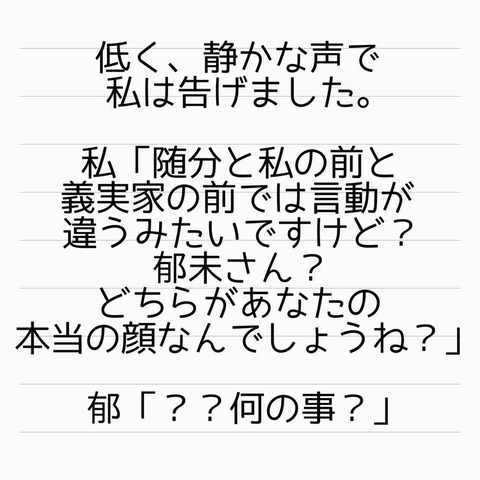 低く、静かな声で
私は告げました。
私「随分と私の前と
義実家の前では言動が
違うみたいですけど？
郁未さん？
どちらがあなたの
本当の顔なんでしょうね？」
郁「？？何の事？」